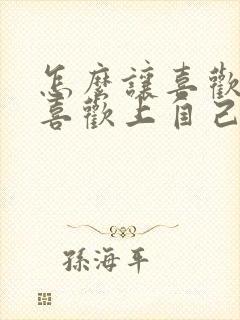 怎麼讓喜歡
喜歡上自己
孫海平